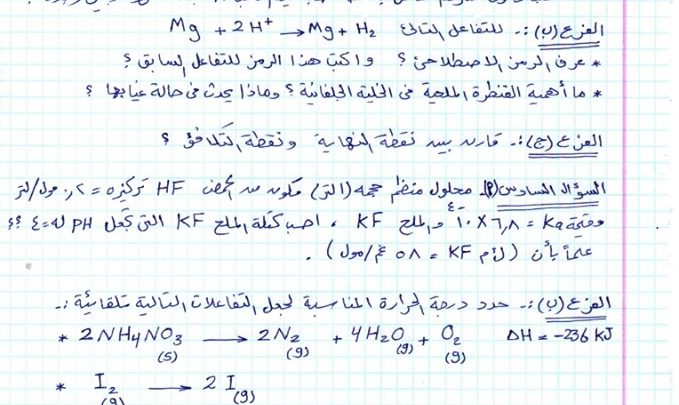 الفرع (ب) :- للتفاعل التالي Mg + 2H⁺ → Mg + H₂
* عرف الرمز الاصطلاحي ؟ واكتب هذا الرمز للتفاعل السابق ؟
* ما أهمية القنطرة الملحية في الخلية الجلفانية ؟ وماذا يحدث في حالة غيابها ؟
الفرع (ج) :- قارن بين نقطة النهاية ونقطة التكافؤ ؟
السؤال السادس (أ) محلول منظم حجمه (لتر) مكون من الحمض HF تركيزه = ٢ر. مول/لتر
وقيمة Ka = ٦,٨ × ١٠⁻٤ والملح KF ، احسب كتلة الملح KF التي تجعل PH له = ٤ ؟؟
علماً بأن (ك.م KF = ٥٨ غم/مول) .
الفرع (ب) :- حدد درجة الحرارة المناسبة لجعل التفاعلات التالية تلقائية :-
* 2NH4NO3 (s) → 2N2 (g) + 4H2O (g) + O2 (g) ΔH = -236 KJ
* I2 (g) → 2 I (g)